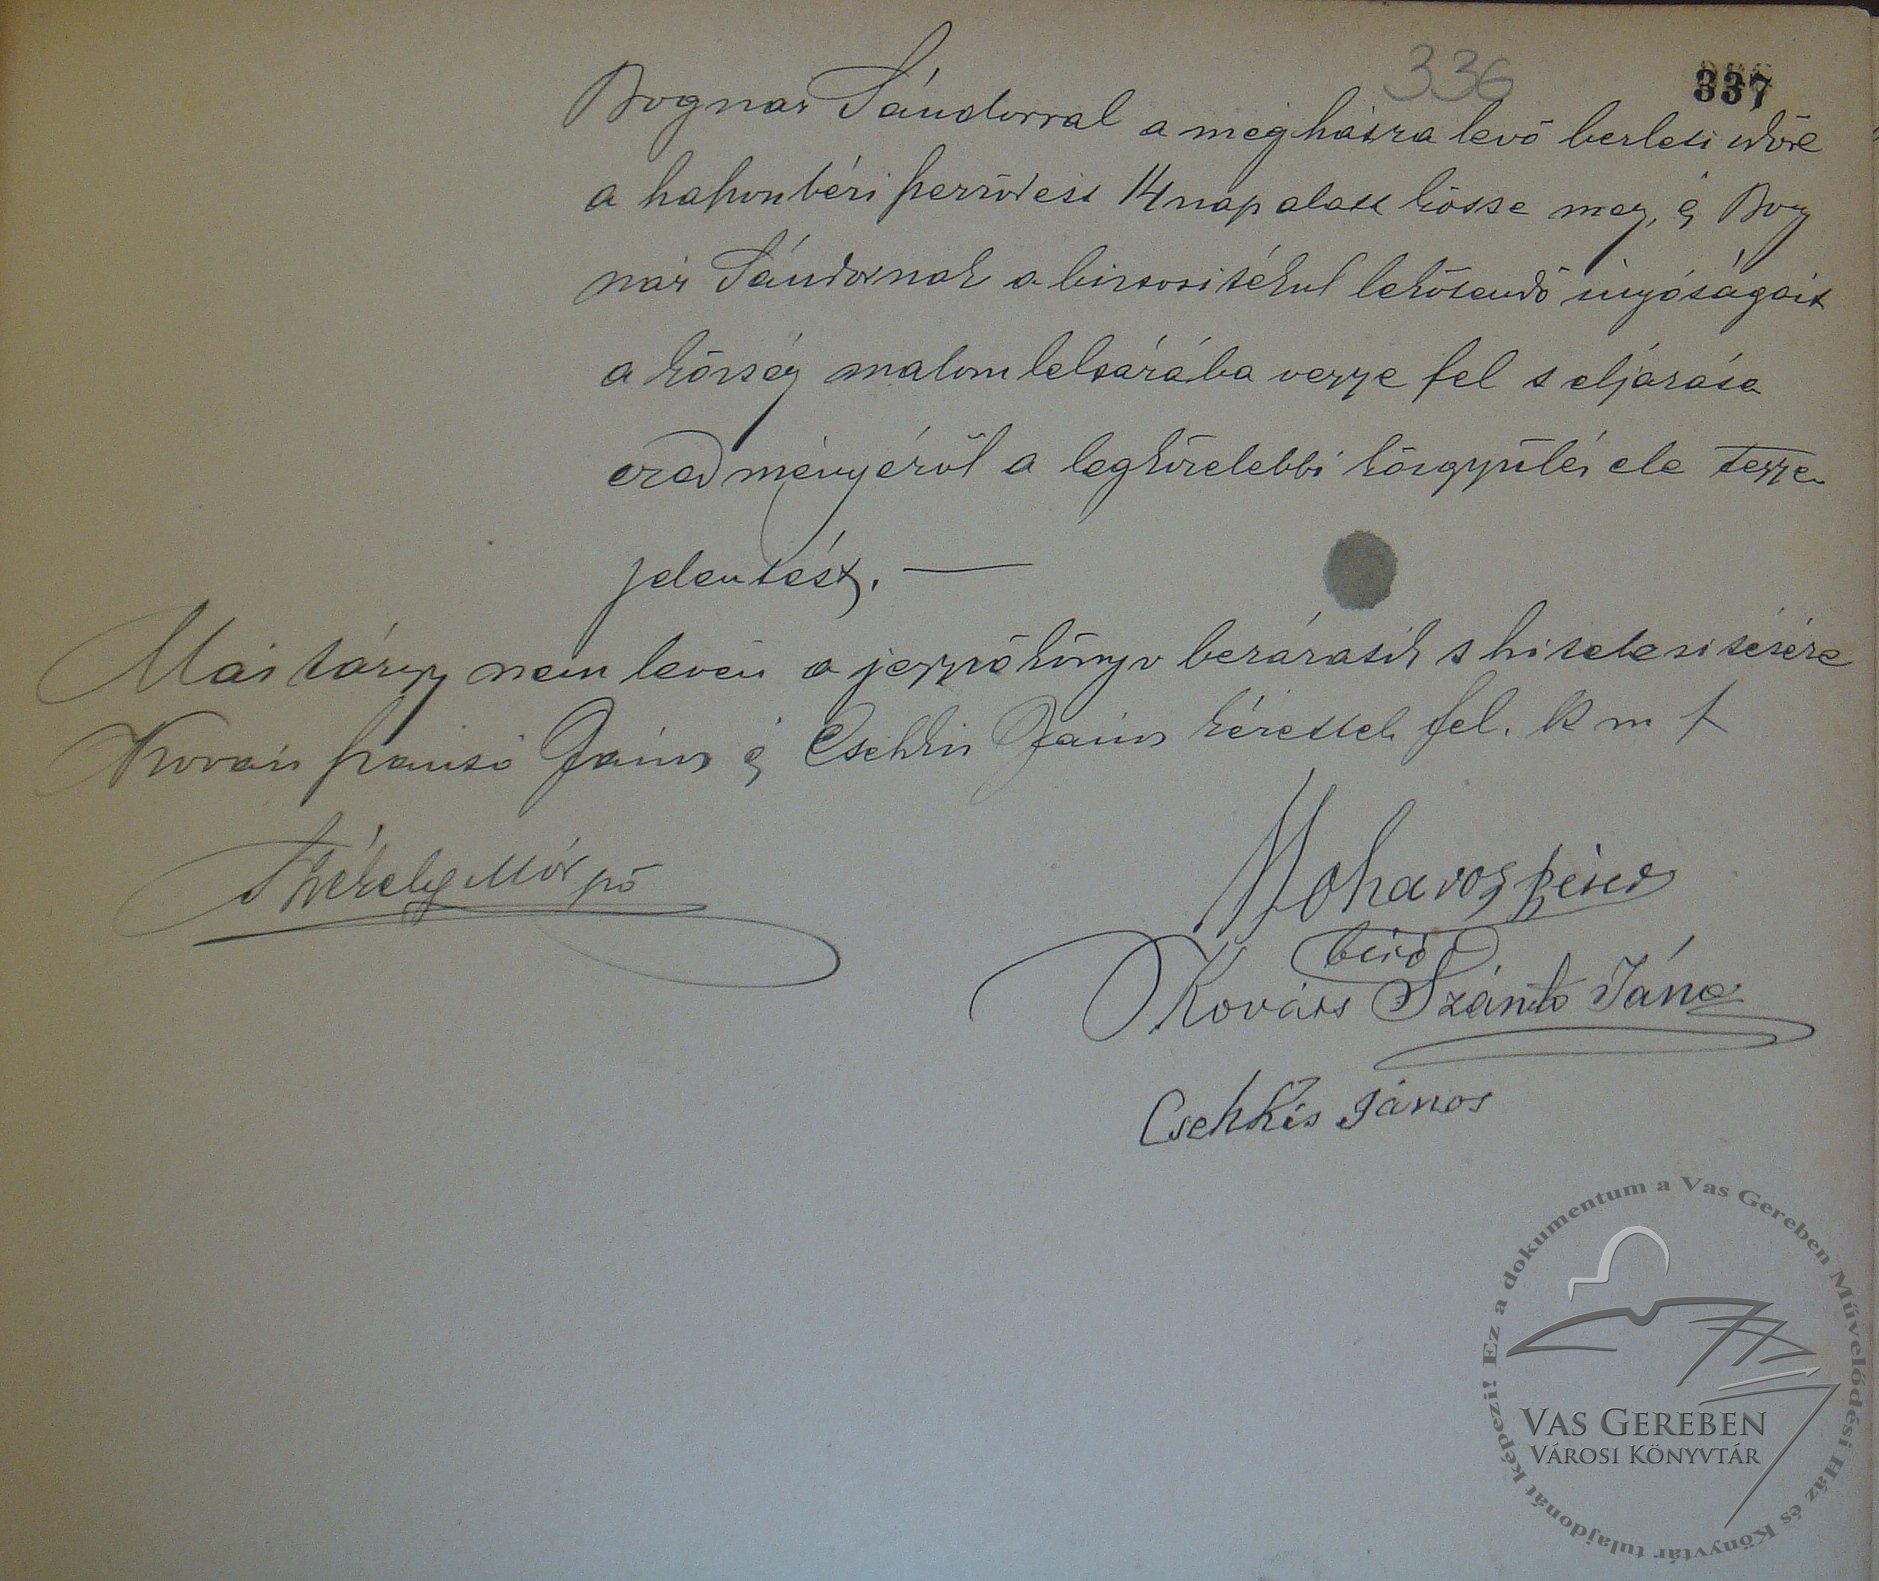 336
337
Bognar Sándorral a még hátra levő berleti időre
a haszonbéri szerződest 14 nap alatt kösse meg, és Bog
nár Sándornak a biztositékul lekötendő ingóságait
a község malom leltárába vegye fel s eljárása
eredményéről a legközelebbi közgyülés ele tegyen
jelentést. —
Más tárgy nem levén a jegyzőkönyv bezáratik s hitelesitésére
Kovács szántó János és Csehkis János kérettek fel. K m f
Székely Mór
Moharos
biró
Kovács Szántó János
Csehkis János
Ez a dokumentum a Vas Gereben Művelődési Ház és Könyvtár tulajdonát képezi!
VAS GEREBEN
VÁROSI KÖNYVTÁR